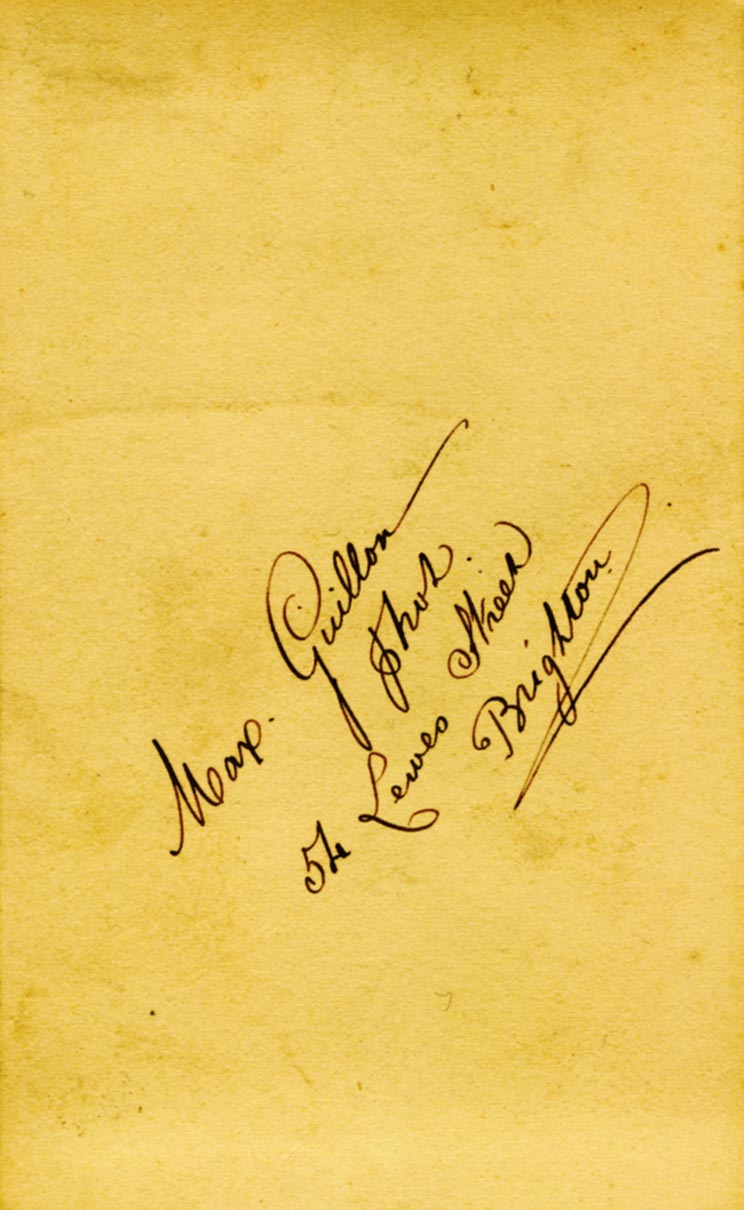 Max. Guillon
Phot.
54 Lewes Street
Brighton.